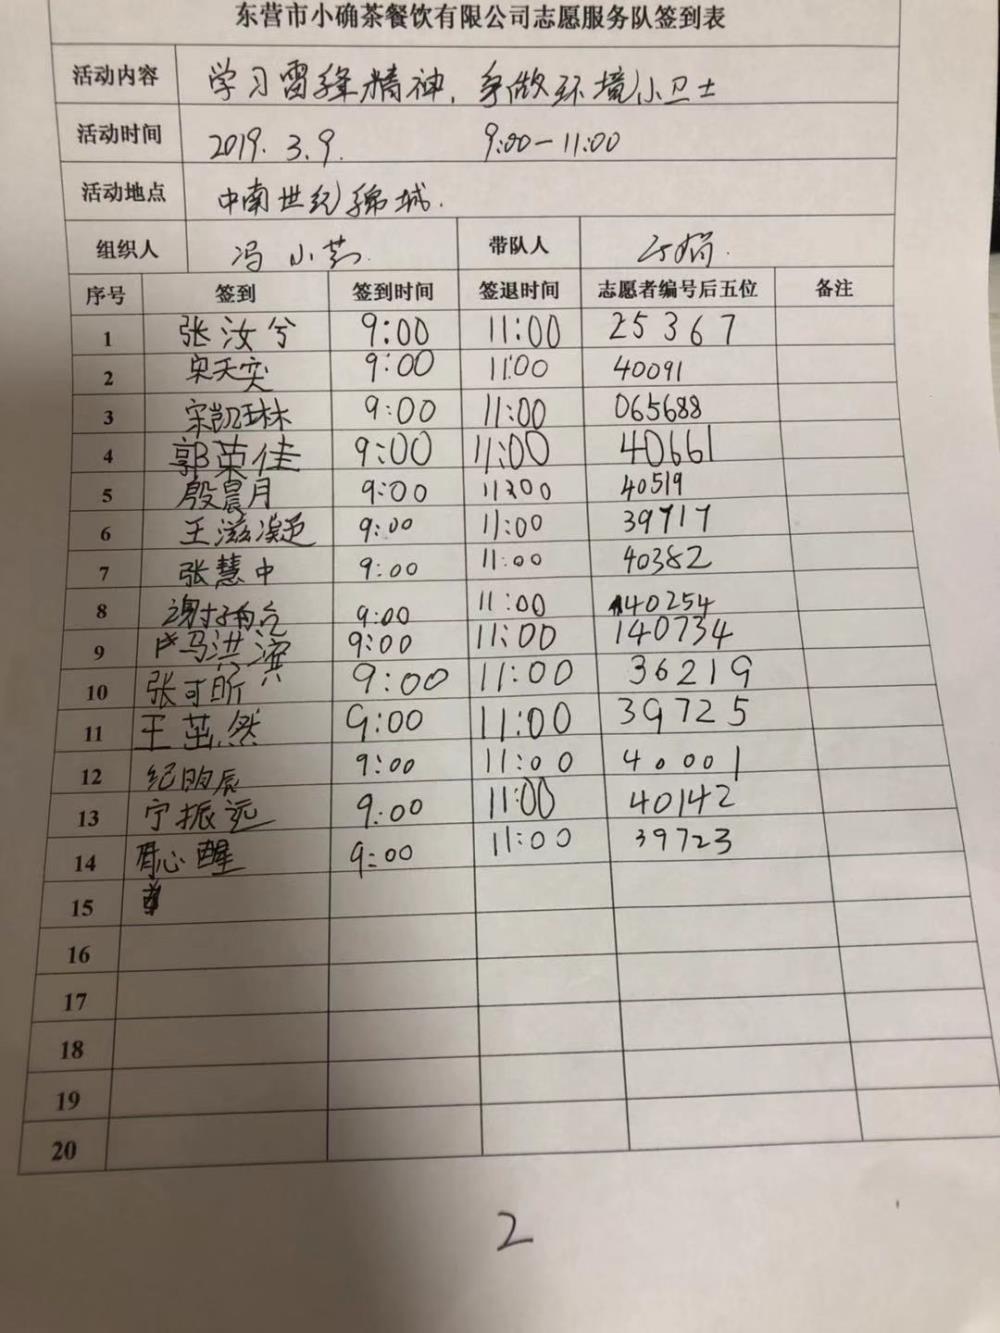 东营市小确茶餐饮有限公司志愿服务队签到表
活动内容 学习雷锋精神,争做环境小卫士
活动时间 2019.3.9. 9:00-11:00
活动地点 中南世纪锦城.
组织人 冯小 带队人
序号 签到 签到时间 签退时间 志愿者编号后五位 备注
1 张汝兮 9:00 11:00 25367
2 宋天奕 9:00 11:00 40091
3 宋凯琳 9:00 11:00 065688
4 郭荣佳 9:00 11:00 40661
5 殷晨月 9:00 11:00 40519
6 王滋 9:00 11:00 39717
7 张慧中 9:00 11:00 40382
8 谢 9:00 11:00 40254
9 马洪滨 9:00 11:00 140734
10 张可昕 9:00 11:00 36219
11 王茁然 9:00 11:00 39725
12 纪昀辰 9:00 11:00 40001
13 宁振远 9:00 11:00 40142
14 心醒 9:00 11:00 39723
15
16
17
18
19
20
2